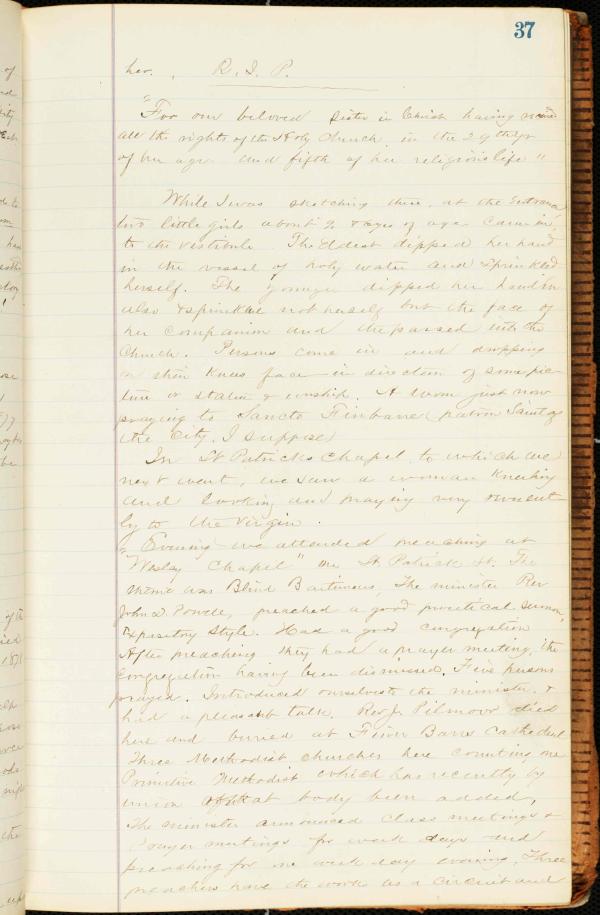 37
her. , R. I. P.
"For our beloved Sister in Christ having
all the rights of the Holy Church in the 29th yr
of her age and fifth of her religious life "
While I was sketching there, at the Entrance
two little girls about & ages of age came in
to the vestibule The Eldest dipped her hand
in the vessel of holy water and sprinkled
herself. The younger dipped her hand in
also & sprinkled not herself but the face of
her companion and they passed into the
Church. Persons come in and dropping
on their knees face in direction of some pic
ture or statue & worship. A woman just now
praying to Sancto Finbane (patron Saint of
the City. I suppose)
In St Patricks Chapel to which we
next went, we saw a woman kneeling
and looking and praying very
ly to the Virgin .
Evening we attended preaching at
"Wesley Chapel" on St. Patrick st. The
theme was Blind Bartimeus, The minister Rev
John D. Powell, preached a good practical sermon,
Expository Style. Had a good congregation
After preaching they had a prayer meeting, the
Congregation having been dismissed. Five persons
prayed. Introduced ourselves to the minister &
had a pleasant talk. Rev J. Pilmoor died
here and buried at Finn Barrs Cathedral
Three Methodist churches here counting one
Primitive Methodist which has recently by
union of that body been added,
The minister announced Class meetings &
Prayer meetings for week days and
preaching for one week day evening. Three
preachers have the work as a circuit and